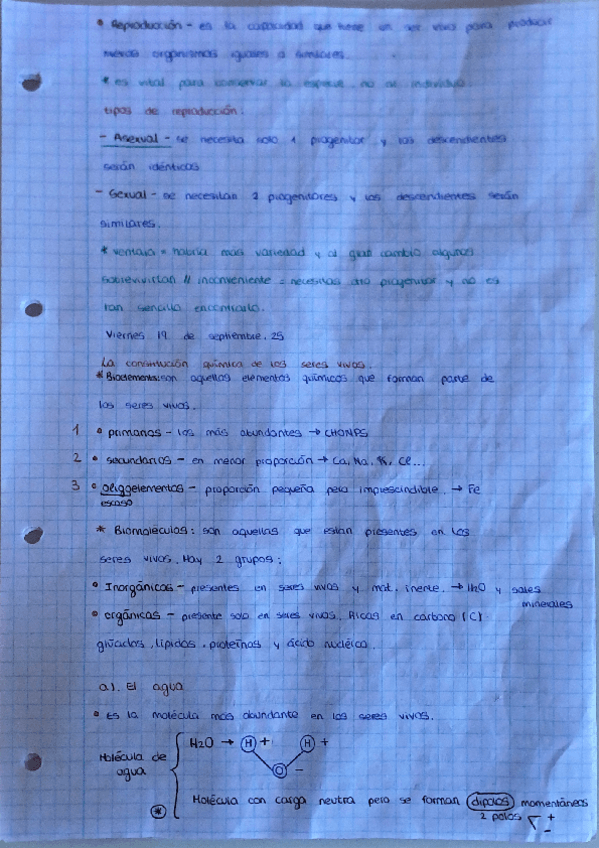 • Reproducción - es la capacidad que tiene un ser vivo para producir
nuevos organismos iguales o similares.
* es vital para conservar la especie, no al individuo.
tipos de reproducción.
- Asexual - se necesita solo 1 progenitor y los descendientes
serán idénticos
- Sexual - se necesitan 2 progenitores y los descendientes serán
similares.
* ventaja = habría más variedad y al gran cambio algunos
sobrevivirían // inconveniente = necesitas otro progenitor y no es
tan sencillo encontrarlo.
Viernes 19 de septiembre. 25
La constitución química de los seres vivos.
* Bioelementos: son aquellos elementos químicos que forman parte de
los seres vivos.
1 • primarios - los más abundantes → CHONPS
2 • secundarios - en menor proporción → Ca, Na, K, Cl...
3 • oligoelementos - proporción pequeña pero imprescindible. → Fe
escaso
* Biomoléculas: son aquellas que están presentes en los
seres vivos. Hay 2 grupos:
• Inorgánicas - presentes en seres vivos y mat. inerte. → H2O y sales
minerales
• orgánicas - presente solo en seres vivos. Ricas en carbono (C).
glúcidos, lípidos, proteínas y ácido nucléico.
a). El agua
• Es la molécula más abundante en los seres vivos.
Molécula de
agua
H2O → H + H +
O -
Molécula con carga neutra pero se forman dipolos momentáneos
* 2 polos + -